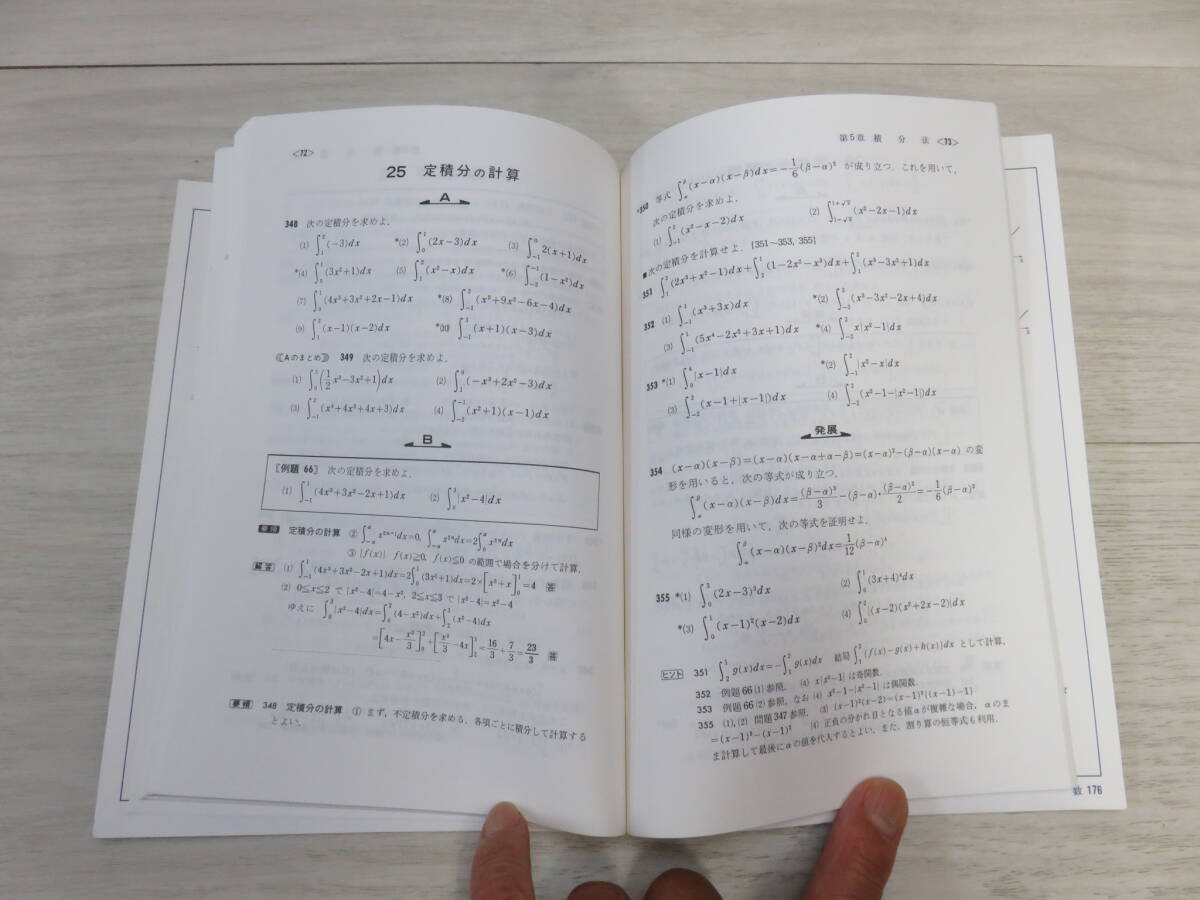 〈72〉
25 定積分の計算
A
348 次の定積分を求めよ.
(1) ∫₁²(−3)dx *(2) ∫₀¹(2x−3)dx (3) ∫₋₁⁰2(x+1)dx
*(4) ∫₀¹(3x²+1)dx (5) ∫₁²(x²−x)dx *(6) ∫₋₂⁻¹(1−x²)dx
(7) ∫₀¹(4x³+3x²+2x−1)dx *(8) ∫₋₁²(x³+9x²−6x−4)dx
(9) ∫₁²(x−1)(x−2)dx *(10) ∫₋₁³(x+1)(x−3)dx
《Aのまとめ》 349 次の定積分を求めよ.
(1) ∫₀²(1/2x³−3x²+1)dx (2) ∫₁⁰(−x³+2x²−3)dx
(3) ∫₋₁²(x⁴+4x³+4x+3)dx (4) ∫₋₂⁻¹(x²+1)(x−1)dx
B
〔例題 66〕 次の定積分を求めよ.
(1) ∫₋₁¹(4x³+3x²−2x+1)dx (2) ∫₀³|x²−4|dx
要領 定積分の計算 ② ∫₋ₐᵃx²ⁿ⁺¹dx=0, ∫₋ₐᵃx²ⁿdx=2∫₀ᵃx²ⁿdx
③ |f(x)| f(x)≧0, f(x)≦0 の範囲で場合を分けて計算.
解答 (1) ∫₋₁¹(4x³+3x²−2x+1)dx=2∫₀¹(3x²+1)dx=2×[x³+x]₀¹=4 答
(2) 0≦x≦2 で |x²−4|=4−x², 2≦x≦3 で |x²−4|=x²−4
ゆえに ∫₀³|x²−4|dx=∫₀²(4−x²)dx+∫₂³(x²−4)dx
=[4x−x³/3]₀²+[x³/3−4x]=16/3+7/3=23/3 答
要領 348 定積分の計算 ① まず, 不定積分を求める. 各項ごとに積分して計算する
とよい.
第5章 積 分 法 〈73〉
*350 等式 ∫_α^β(x−α)(x−β)dx=−1/6(β−α)³ が成り立つ. これを用いて,
次の定積分を求めよ.
(1) ∫₋₁²(x²−x−2)dx (2) ∫_{1−√2}^{1+√2}(x²−2x−1)dx
■次の定積分を計算せよ. [351〜353, 355]
351 ∫₁²(2x³+x²−1)dx+∫₂¹(1−2x²−x³)dx+∫₁²(x³−3x²+1)dx
352 (1) ∫₋₁¹(x³+3x)dx *(2) ∫₋₂²(x³−3x²−2x+4)dx
(3) ∫₋₁¹(5x⁴−2x³+3x+1)dx *(4) ∫₋₂²x|x²−1|dx
353 *(1) ∫₀⁴|x−1|dx *(2) ∫₋₁²|x²−x|dx
(3) ∫₋₂²(x−1+|x−1|)dx (4) ∫₋₂²(x²−1−|x²−1|)dx
発展
354 (x−α)(x−β)=(x−α)(x−α+α−β)=(x−α)²−(β−α)(x−α) の変
形を用いると, 次の等式が成り立つ.
∫_α^β(x−α)(x−β)dx=(β−α)³/3−(β−α)・(β−α)²/2=−1/6(β−α)³
同様の変形を用いて, 次の等式を証明せよ.
∫_α^β(x−α)(x−β)²dx=1/12(β−α)⁴
355 *(1) ∫₀³(2x−3)³dx (2) ∫₀¹(3x+4)⁴dx
*(3) ∫₀¹(x−1)²(x−2)dx (4) ∫₀¹|(x−2)(x²+2x−2)|dx
ヒント 351 ∫₂¹g(x)dx=−∫₁²g(x)dx 結局 ∫₁²{f(x)−g(x)+h(x)}dx として計算.
352 例題66(1)参照. (4) x|x²−1| は奇関数.
353 例題66(2)参照. なお (4) x²−1−|x²−1| は偶関数.
355 (1), (2) 問題347参照. (3) (x−1)²(x−2)=(x−1)²{(x−1)−1}
=(x−1)³−(x−1)² (4) 正負の分かれ目となる値αが複雑な場合, αのま
ま計算して最後にαの値を代入するとよい. また, 割り算の恒等式も利用.
数 176